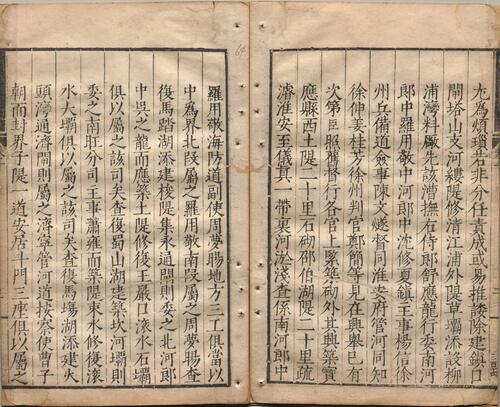 尤為煩瑣若非分任責成或易推諉除建鎮口
閘塔山支河縷隄修清江浦外隄草壩添設柳
浦灣料廠先該漕撫右侍郎舒應龍行委南河
郎中羅用敬中河郎中沈修夏鎮主事楊信徐
州兵備道僉事陳文燧督同淮安府管河同知
徐伸姜桂芳徐州判官鄭簡等見在興舉已有
次第臣照舊督行各官上緊築砌外其興築寶
應縣西土隄二十里石砌邵伯湖隄二十里疏
濬淮安至儀真一帶裏河淤淺查係南河郎中
羅用敬海防道副使周夢暘地方三工俱當以
中為界北段屬之羅用敬南段屬之周夢暘查
復馬踏湖添建梭隄集永通閘則委之北河郎
中吳之龍而應築土隄修復王嚴口滾水石壩
俱以屬之該司矣查復蜀山湖建築坎河壩則
委之南旺分司主事蕭雍而築隄東水修復滾
水大壩俱以屬之該司矣查復馬場湖添建火
頭灣通濟閘則屬之濟寧管河道按察使曹子
朝而封界子隄一道安居斗門三座俱以屬之